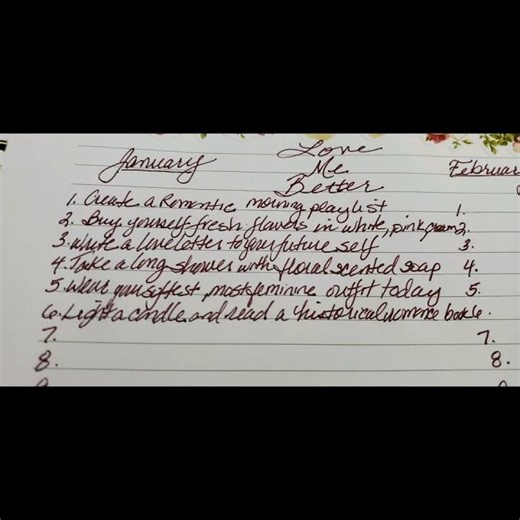 Love
January Me Februar
Better
1. Create a Romantic morning playlist 1.
2. Buy yourself fresh flowers in white, pink, cream 2.
3. Write a love letter to your future self 3.
4. Take a long shower with floral scented soap 4.
5. Wear your softest, most feminine outfit today 5.
6. Light a candle and read a historical romance book 6.
7. 7.
8. 8.